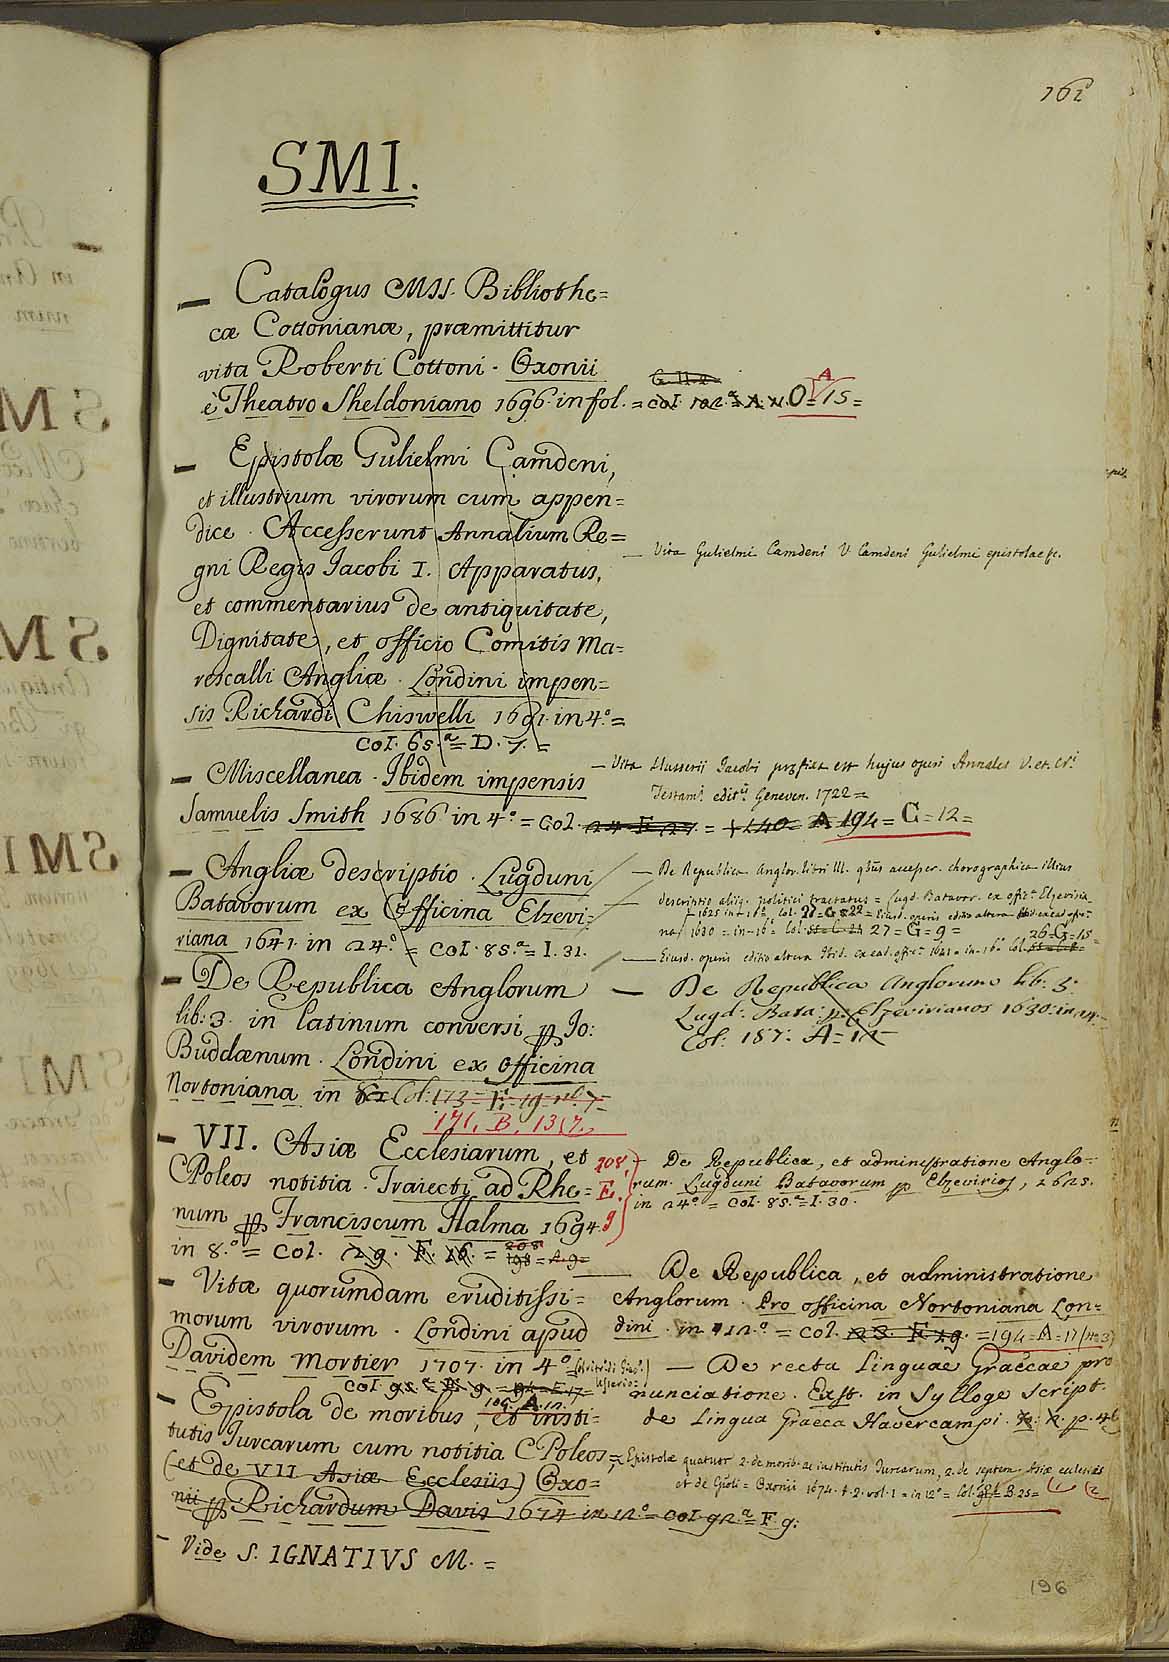 161
SMI.
— Catalogus MSS. Bibliothe=
cæ Cottonianæ, præmittitur
vita Roberti Cottoni. Oxonii
è Theatro Sheldoniano 1696. in fol. = O = 15 =
A
— Epistolæ Gulielmi Camdeni,
et illustrium virorum cum appen=
dice. Accesserunt Annalium Re=
gni Regis Jacobi I. Apparatus,
et commentarius de antiquitate,
Dignitate, et officio Comitis Ma=
rescalli Angliæ. Londini impen=
sis Richardi Chiswelli 1691. in 4.° =
Col. 65.ª = D. 7. =
— Vita Gulielmi Camdeni V. Camdeni Gulielmi epistolae &c.
— Miscellanea. Ibidem impensis
Samuelis Smith 1686 in 4.° = Col. 24 F 27 = 1140 = A 194 = G = 12 =
— Vita Usserii Jacobi præfixa est hujus operi Annales V. et
Testam. edit. Geneven. 1722 =
— Angliæ descriptio. Lugduni
Batavorum ex Officina Elzevi=
riana 1641. in 24.° = Col. 85.ª = I. 31.
— De Republica Anglor. libri III. accesser. chorographica illius
descriptio aliiq. politici tractatus = Lugd. Batavor. ex offic.ª Elzeviria
1625 in 16.°
1630 = in 16.° 27 = G = 9 =
26 = G = 18 =
— Ejusd. operis editio altera Ibid. ex ead. offic.ª 1641 = in 16.°
— De Republica Anglorum
lib: 3. in latinum conversi p Jo:
Buddænum. Londini ex officina
Nortoniana in Col: 173 = F. 19 n. 7 =
171. B. 13 (7.
— De Republica Anglorum lib. 3:
Lugd: Bata: p. Elzevirianos 1630: in 24. =
Col: 187: A = 12
— VII. Asiæ Ecclesiarum, et
CPoleos notitia. Traiecti ad Rhe=
num p Franciscum Halma 1694.
in 8.° = Col. 29. F. 16. = 198 = A. 9 =
208
208.
E.
9
— De Republica, et administratione Anglo=
rum. Lugduni Batavorum p Elzevirios, 1625.
in 24.° = Col. 85.ª = I. 30.
— Vitæ quorumdam eruditissi=
morum virorum. Londini apud
Davidem Mortier 1707. in 4.°
A.
— De Republica, et administratione
Anglorum. Pro officina Nortoniana Lon=
dini. in 12.° = Col. 23. F. 19. = 194 = A = 17 (n.° 3)
— De recta Linguae Graecae pro
nunciatione. Exst. in Sylloge Script.
de Lingua Graeca Havercampi. p. 46
— Epistola de moribus, et insti=
tutis Turcarum cum notitia CPoleos,
(et de VII Asiæ Ecclesiis) Oxo=
nii p Richardum Davis 1674 in 12.° = Col. 92.ª = F 9:
= Epistolæ quatuor 2. de morib. ac institutis Turcarum, 2. de septem Asiæ ecclesiis
et de = Oxonii 1674. t. 2. vol. 1 = in 12° = Col. B 25 = (1 (2
— Vide S. IGNATIVS M. =
196